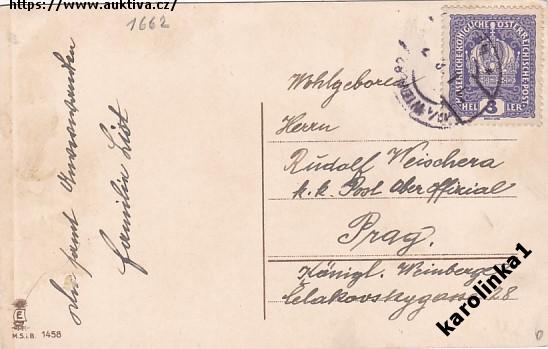 https://www.auktiva.cz/
1662
KAISERLICHE KÖNIGLICHE ÖSTERREICHISCHE POST
3
HELLER
WIEN
Wohlgeboren
Herrn
Rudolf Weischera
k. k. Post Ober Official
Prag.
Königl. Weinberge
Čelakovskygasse 28
samt
Familie List
M.S.i.B. 1458
karolinka1